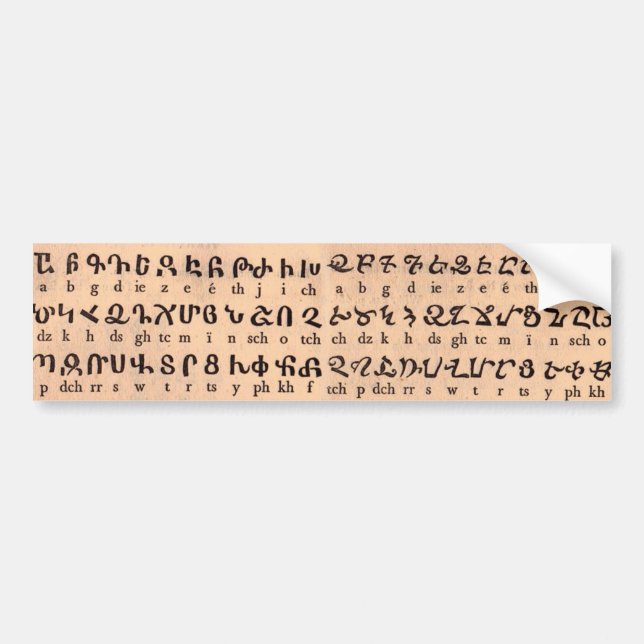 Ա Բ Գ Դ Ե Զ Է Ը Թ Ժ Ի Խ Ա Բ Գ Դ Ե Զ Է Ը Թ
a b g d ie z e é th j i ch a b g d ie z e é th
Ծ Կ Հ Ձ Ղ Ճ Մ Յ Ն Շ Ո Չ Խ Ծ Կ Հ Ձ Ղ Ճ Մ Յ Ն Շ Ո
dz k h ds gh tc m ï n sch o tch ch dz k h ds gh tc m ï n sch o
Պ Ջ Ռ Ս Վ Տ Ր Ց Ւ Փ Ք Ֆ Չ Պ Ջ Ռ Ս Վ Տ Ր Ց Ւ Փ Ք
p dch rr s w t r ts y ph kh f tch p dch rr s w t r ts y ph kh